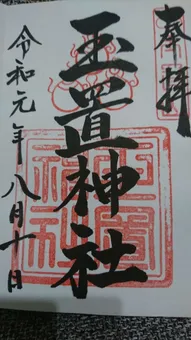 奉拝
玉置神社
令和元年八月十日